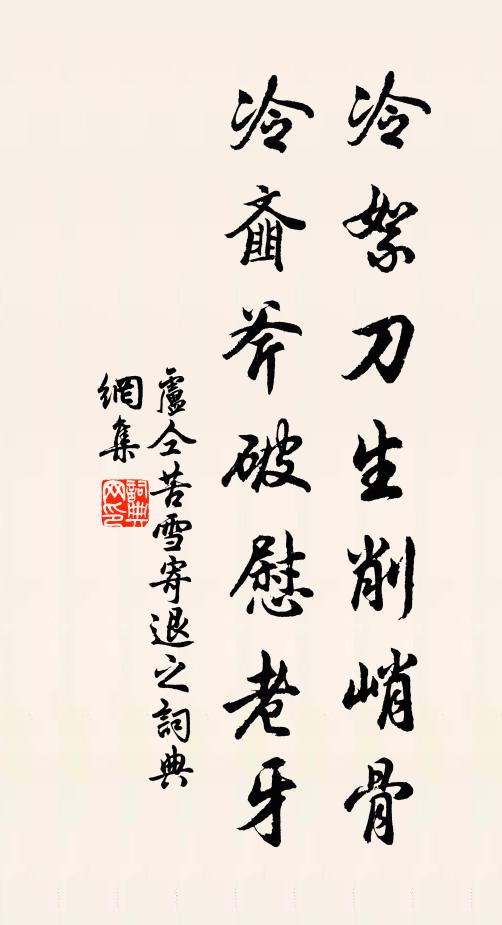 冷絮刀生削峭骨
冷齏斧破慰老牙
盧仝苦雪寄退之詞典
網集
詞典
网印